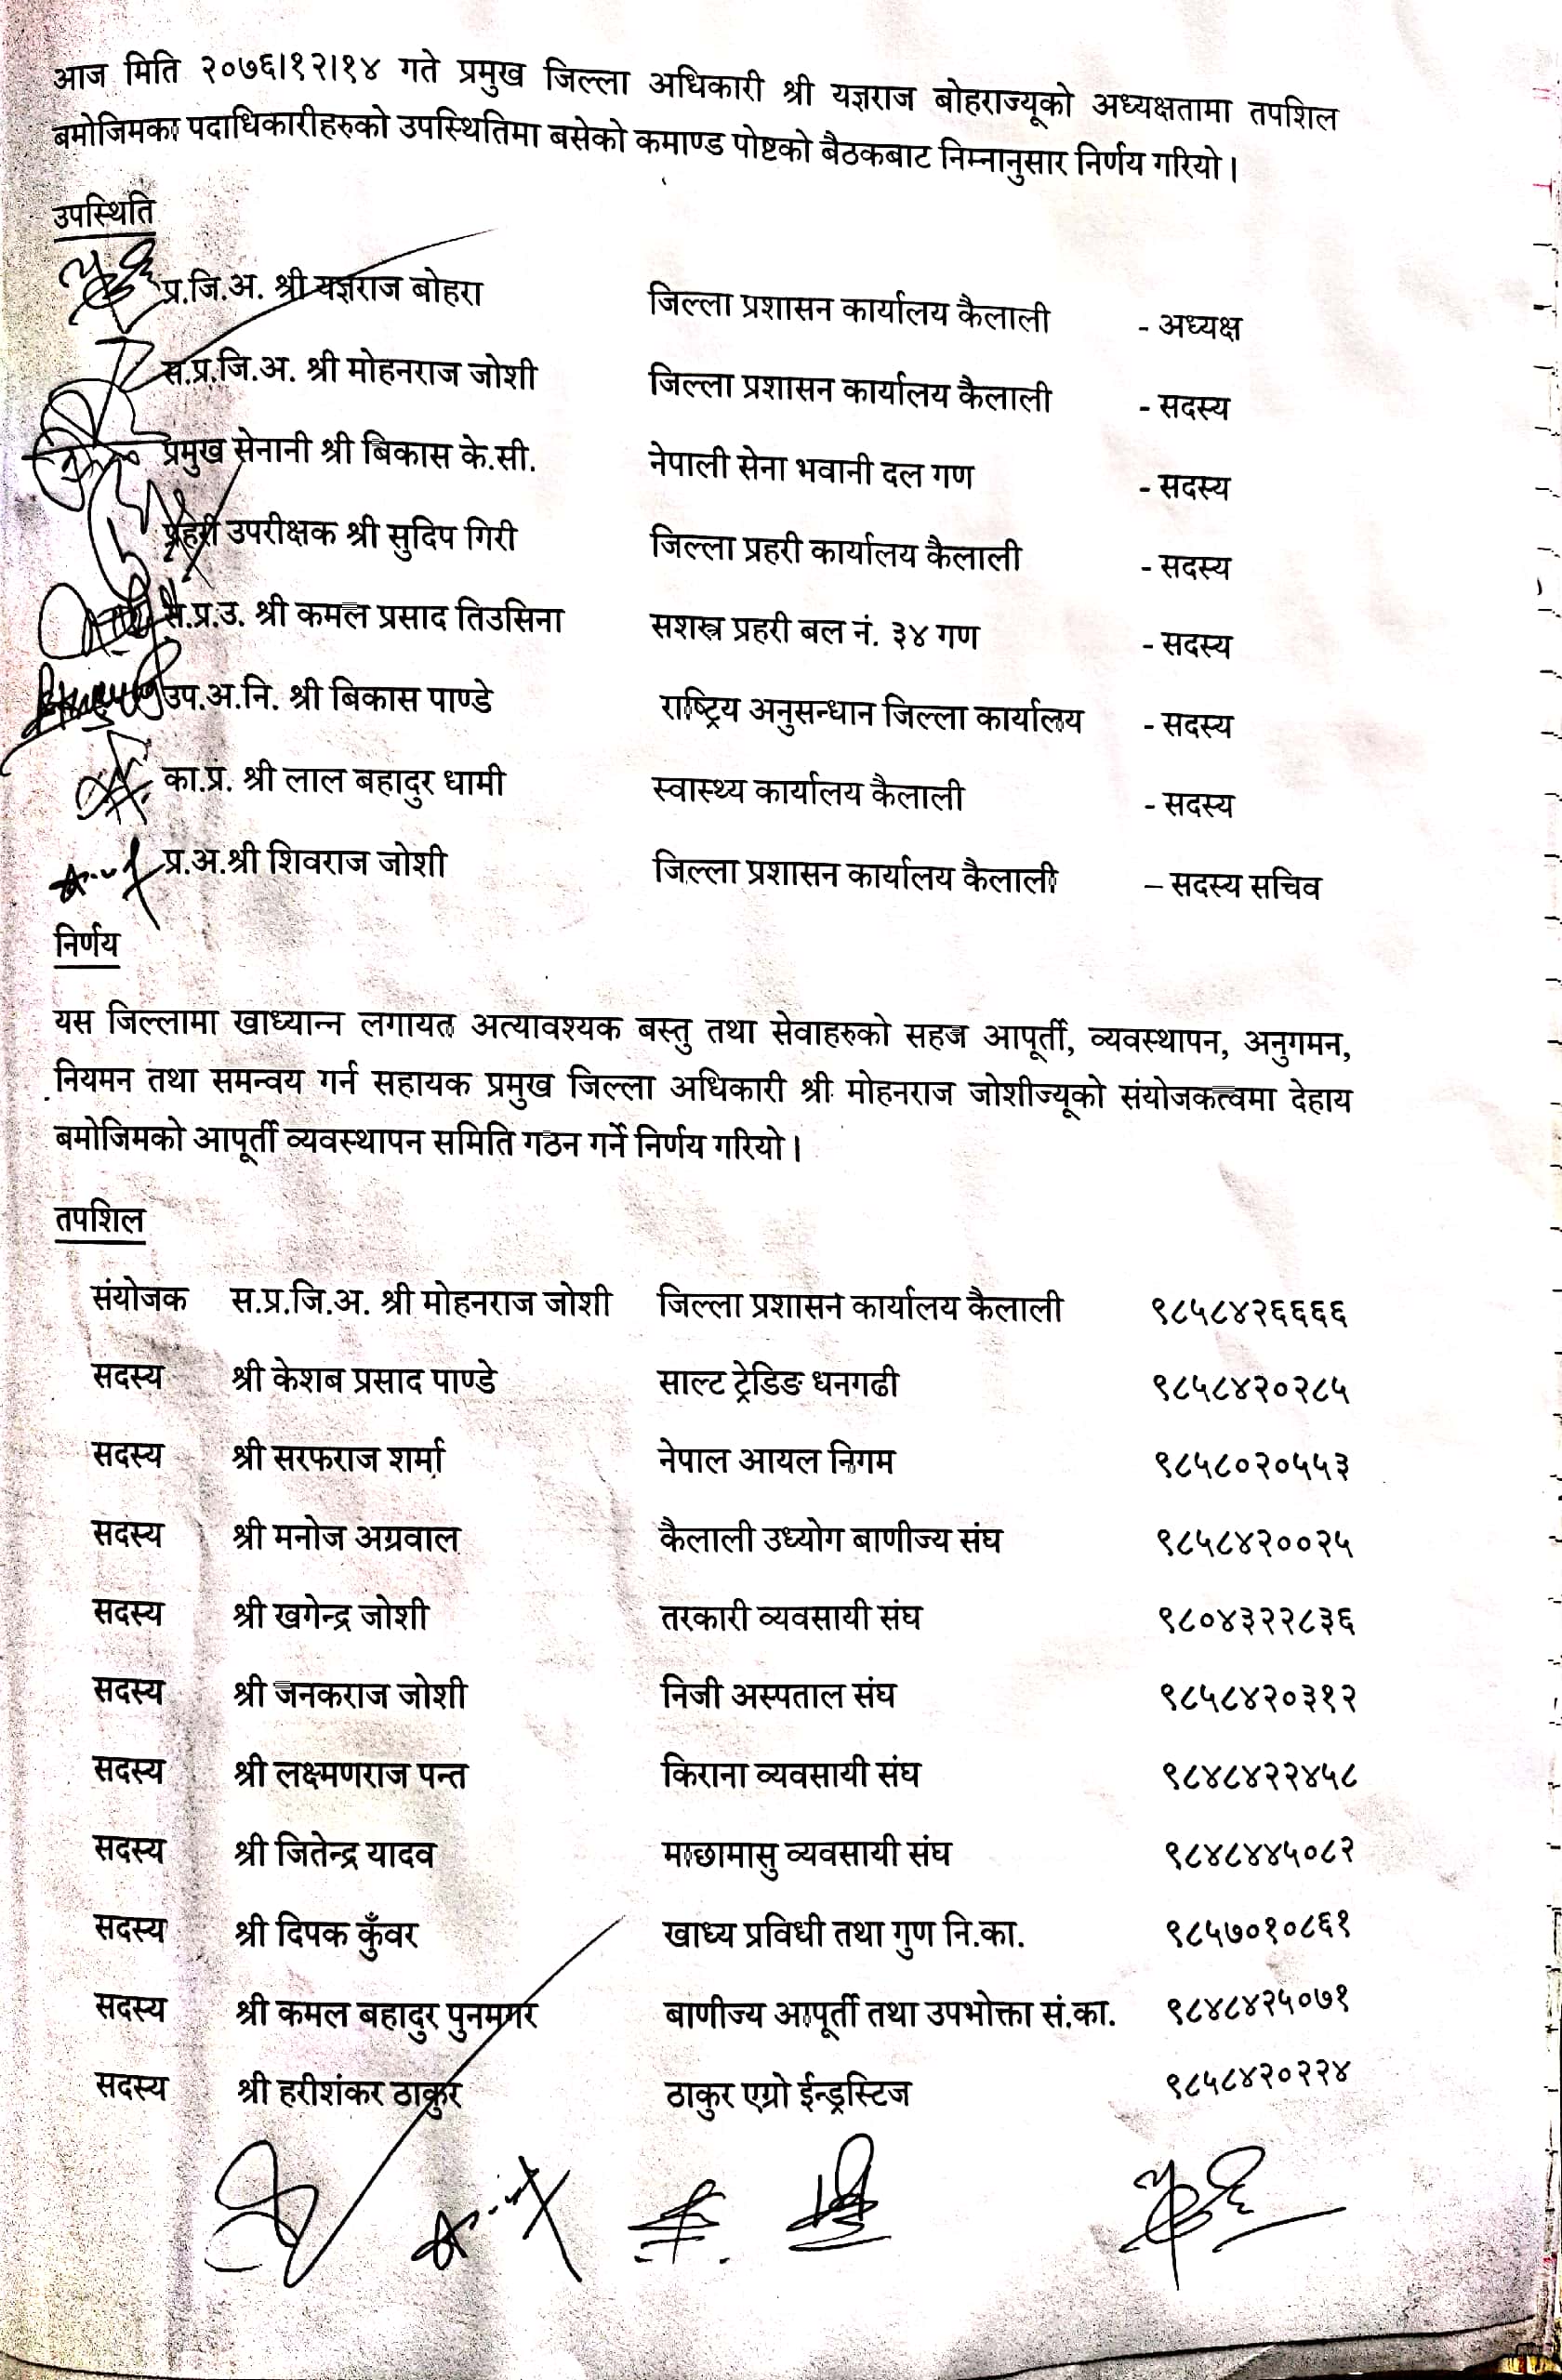 आज मिति २०७६।१२।१४ गते प्रमुख जिल्ला अधिकारी श्री यज्ञराज बोहराज्यूको अध्यक्षतामा तपशिल
बमोजिमका पदाधिकारीहरुको उपस्थितिमा बसेको कमाण्ड पोष्टको बैठकबाट निम्नानुसार निर्णय गरियो।
उपस्थिति
प्र.जि.अ. श्री यज्ञराज बोहरा जिल्ला प्रशासन कार्यालय कैलाली - अध्यक्ष
स.प्र.जि.अ. श्री मोहनराज जोशी जिल्ला प्रशासन कार्यालय कैलाली - सदस्य
प्रमुख सेनानी श्री बिकास के.सी. नेपाली सेना भवानी दल गण - सदस्य
प्रहरी उपरीक्षक श्री सुदिप गिरी जिल्ला प्रहरी कार्यालय कैलाली - सदस्य
स.प्र.उ. श्री कमल प्रसाद तिउसिना सशस्त्र प्रहरी बल नं. ३४ गण - सदस्य
उप.अ.नि. श्री बिकास पाण्डे राष्ट्रिय अनुसन्धान जिल्ला कार्यालय - सदस्य
का.प्र. श्री लाल बहादुर धामी स्वास्थ्य कार्यालय कैलाली - सदस्य
प्र.अ.श्री शिवराज जोशी जिल्ला प्रशासन कार्यालय कैलाली – सदस्य सचिव
निर्णय
यस जिल्लामा खाध्यान्न लगायत अत्यावश्यक बस्तु तथा सेवाहरुको सहज आपूर्ती, व्यवस्थापन, अनुगमन,
नियमन तथा समन्वय गर्न सहायक प्रमुख जिल्ला अधिकारी श्री मोहनराज जोशीज्यूको संयोजकत्वमा देहाय
बमोजिमको आपूर्ती व्यवस्थापन समिति गठन गर्ने निर्णय गरियो।
तपशिल
संयोजक स.प्र.जि.अ. श्री मोहनराज जोशी जिल्ला प्रशासन कार्यालय कैलाली ९८५८४२६६६६
सदस्य श्री केशब प्रसाद पाण्डे साल्ट ट्रेडिङ धनगढी ९८५८४२०२८५
सदस्य श्री सरफराज शर्मा नेपाल आयल निगम ९८५८०२०५५३
सदस्य श्री मनोज अग्रवाल कैलाली उध्योग बाणीज्य संघ ९८५८४२००२५
सदस्य श्री खगेन्द्र जोशी तरकारी व्यवसायी संघ ९८०४३२२८३६
सदस्य श्री जनकराज जोशी निजी अस्पताल संघ ९८५८४२०३१२
सदस्य श्री लक्ष्मणराज पन्त किराना व्यवसायी संघ ९८४८४२२४५८
सदस्य श्री जितेन्द्र यादव माछामासु व्यवसायी संघ ९८४८४४५०८२
सदस्य श्री दिपक कुँवर खाध्य प्रविधी तथा गुण नि.का. ९८५७०१०८६१
सदस्य श्री कमल बहादुर पुनमगर बाणीज्य आपूर्ती तथा उपभोक्ता सं.का. ९८४८४२५०७१
सदस्य श्री हरीशंकर ठाकुर ठाकुर एग्रो ईन्ड्रस्टिज ९८५८४२०२२४